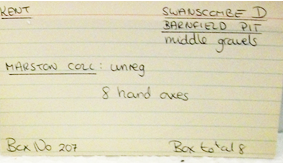 KENT
SWANSCOMBE D
BARNFIELD PIT
middle gravels
MARSTON COLL: unreg
8 hand axes
Box No 207
Box total 8